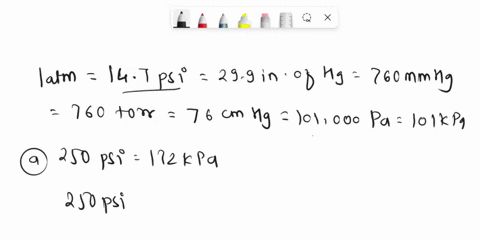 1atm = 14.7 psi = 29.9 in. of Hg = 760 mmHg
= 760 torr = 76 cm Hg = 101,000 Pa = 101 kPa
a 250 psi = 172 kPa
250 psi